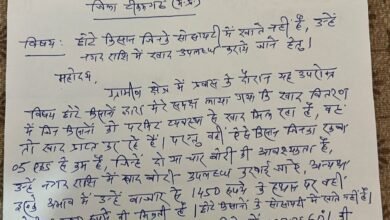 जिला टीकमगढ़ (म.प्र.)
विषय: छोटे किसान जिनके सोसायटी में खाते नहीं है, उन्हें
नगद राशि में खाद उपलब्ध कराये जाने हेतु।
महोदय,
ग्रामीण क्षेत्र में प्रवास के दौरान यह उपरोक्त
विषय छोटे किसानों द्वारा मेरे समक्ष लाया गया कि खाद वितरण
में जिन किसानों को परमिट व्यवस्था से खाद मिल रहा है, वह
तो खाद प्राप्त कर रहे हैं। परन्तु वहीं छोटे किसान जिनका रकवा
05 एकड़ से कम है, जिन्हें दो या चार बोरी की आवश्यकता है,
उन्हें नगद राशि में खाद की बोरी उपलब्ध कराई जावे, अन्यथा
अभाव में उन्हें बाजार से 1450 रुपये
छोटे किसानों के सोसायटी में खाते नहीं है।